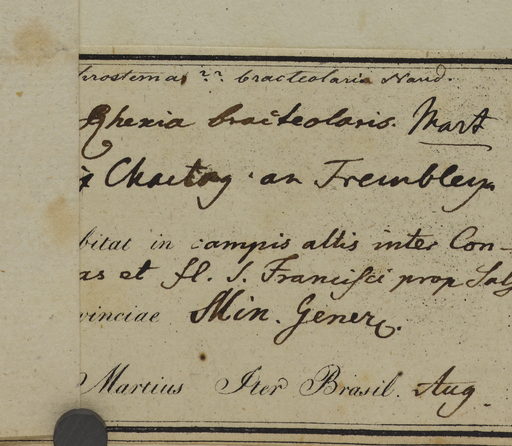 bracteolaria Naud.
Rhexia bracteolaris. Mart
an Trembleya
bitat in campis altis inter Con-
as et fl. S. Francisci prop Salg
vinciae Min. Gener.
Martius Iter Brasil. Aug.